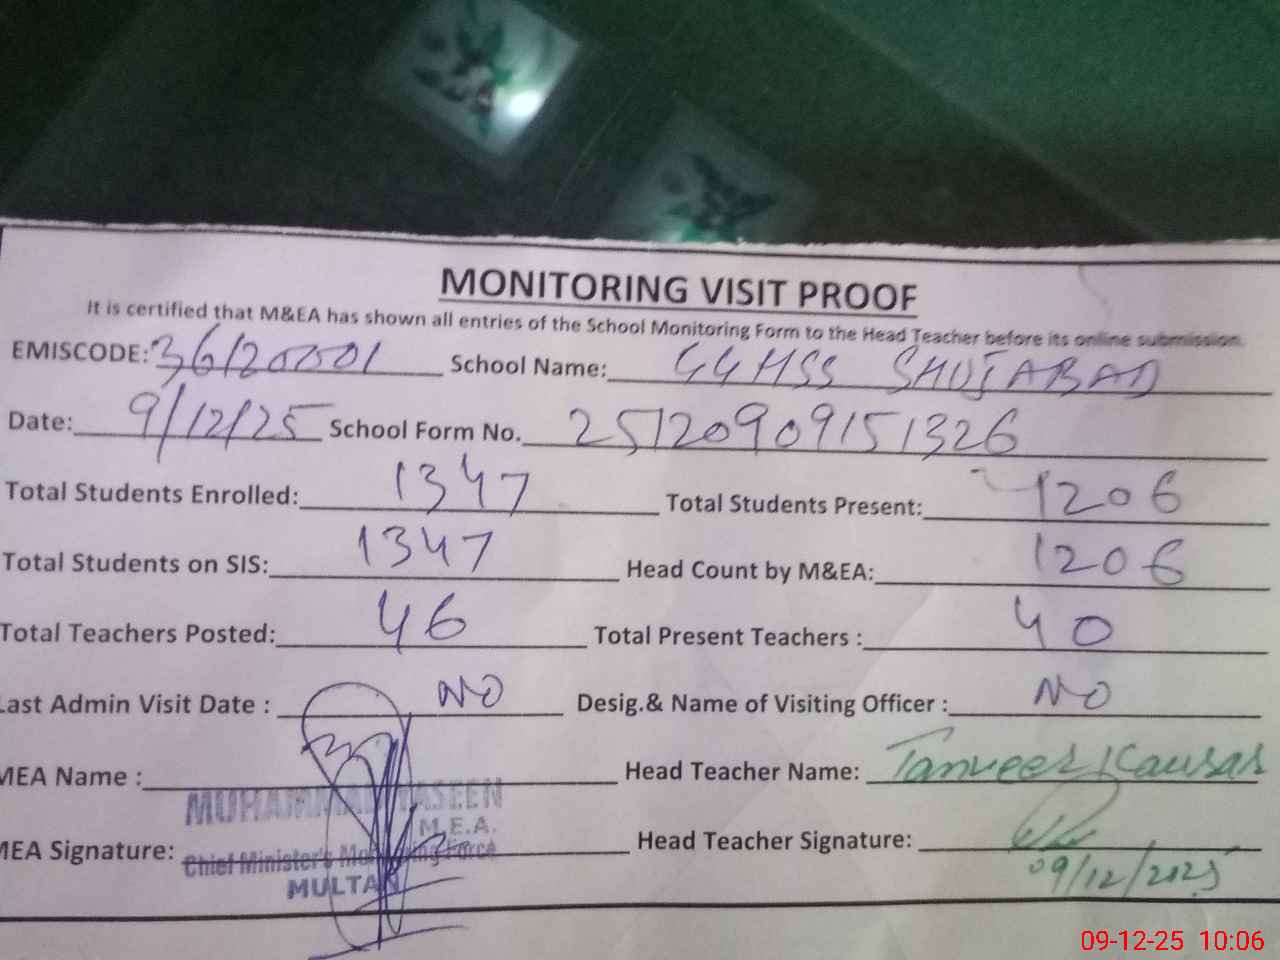 MONITORING VISIT PROOF
It is certified that M&EA has shown all entries of the School Monitoring Form to the Head Teacher before its online submission.
EMISCODE: 36120001 School Name: GGHSS SHUJABAD
Date: 9/12/25 School Form No. 25120909151326
Total Students Enrolled: 1347 Total Students Present: 1206
Total Students on SIS: 1347 Head Count by M&EA: 1206
Total Teachers Posted: 46 Total Present Teachers : 40
Last Admin Visit Date : NO Desig.& Name of Visiting Officer : NO
MEA Name : Head Teacher Name: Tanveer Kausar
MUHAMMAD YASEEN
M.E.A.
MEA Signature: Head Teacher Signature:
Chief Minister's Monitoring Force
MULTAN
09/12/2025
09-12-25 10:06